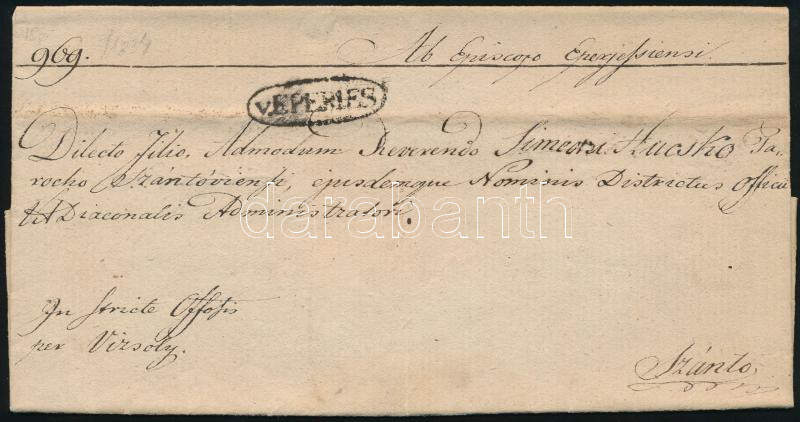 969. /1834 Ab Episcopo Eperjessiensi.
v.EPERIES
Dilecto Filio, Admodum Reverendo Simeoni Hucsko Pa-
rocho Szántóviensi, ejusdemque Nominis Districtus Officii
V.A.Diaconalis Administratori.
darabanth
In stricte Offosis
per Vizsoly.
Szánto.